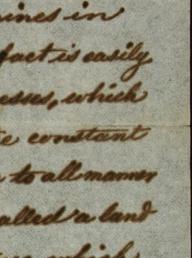 ines in
fact is easily
esses, which
e constant
to all manner
alled a land
which